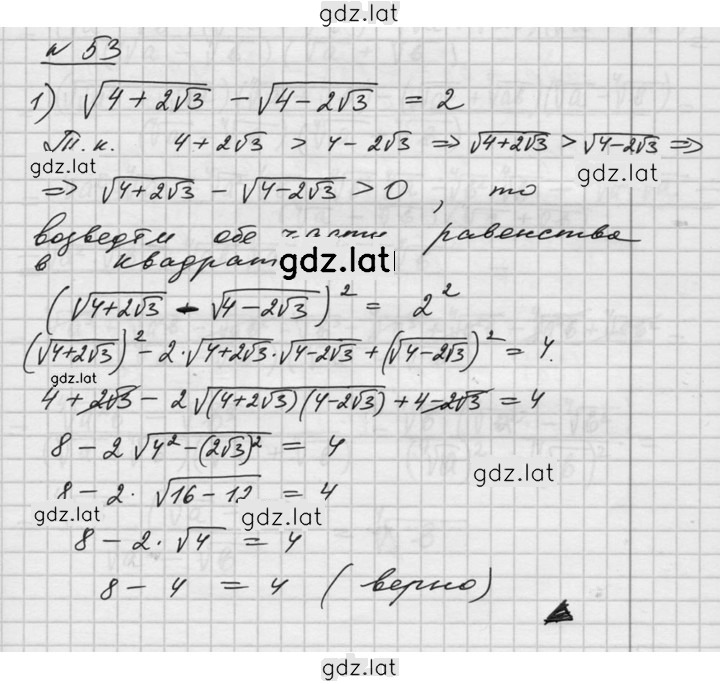 gdz.lat
№ 53
1) √(4+2√3) − √(4−2√3) = 2
Т.к. 4+2√3 > 4−2√3 ⇒ √(4+2√3) > √(4−2√3) ⇒
gdz.lat
⇒ √(4+2√3) − √(4−2√3) > 0, то
возведём обе части равенства
в квадрат
gdz.lat
(√(4+2√3) − √(4−2√3))² = 2²
(√(4+2√3))² − 2·√(4+2√3)·√(4−2√3) + (√(4−2√3))² = 4.
gdz.lat
4+2√3 − 2√((4+2√3)(4−2√3)) + 4−2√3 = 4
8 − 2√(4²−(2√3)²) = 4
gdz.lat
8 − 2·√(16−12) = 4
gdz.lat gdz.lat
8 − 2·√4 = 4
8 − 4 = 4 (верно)
gdz.lat